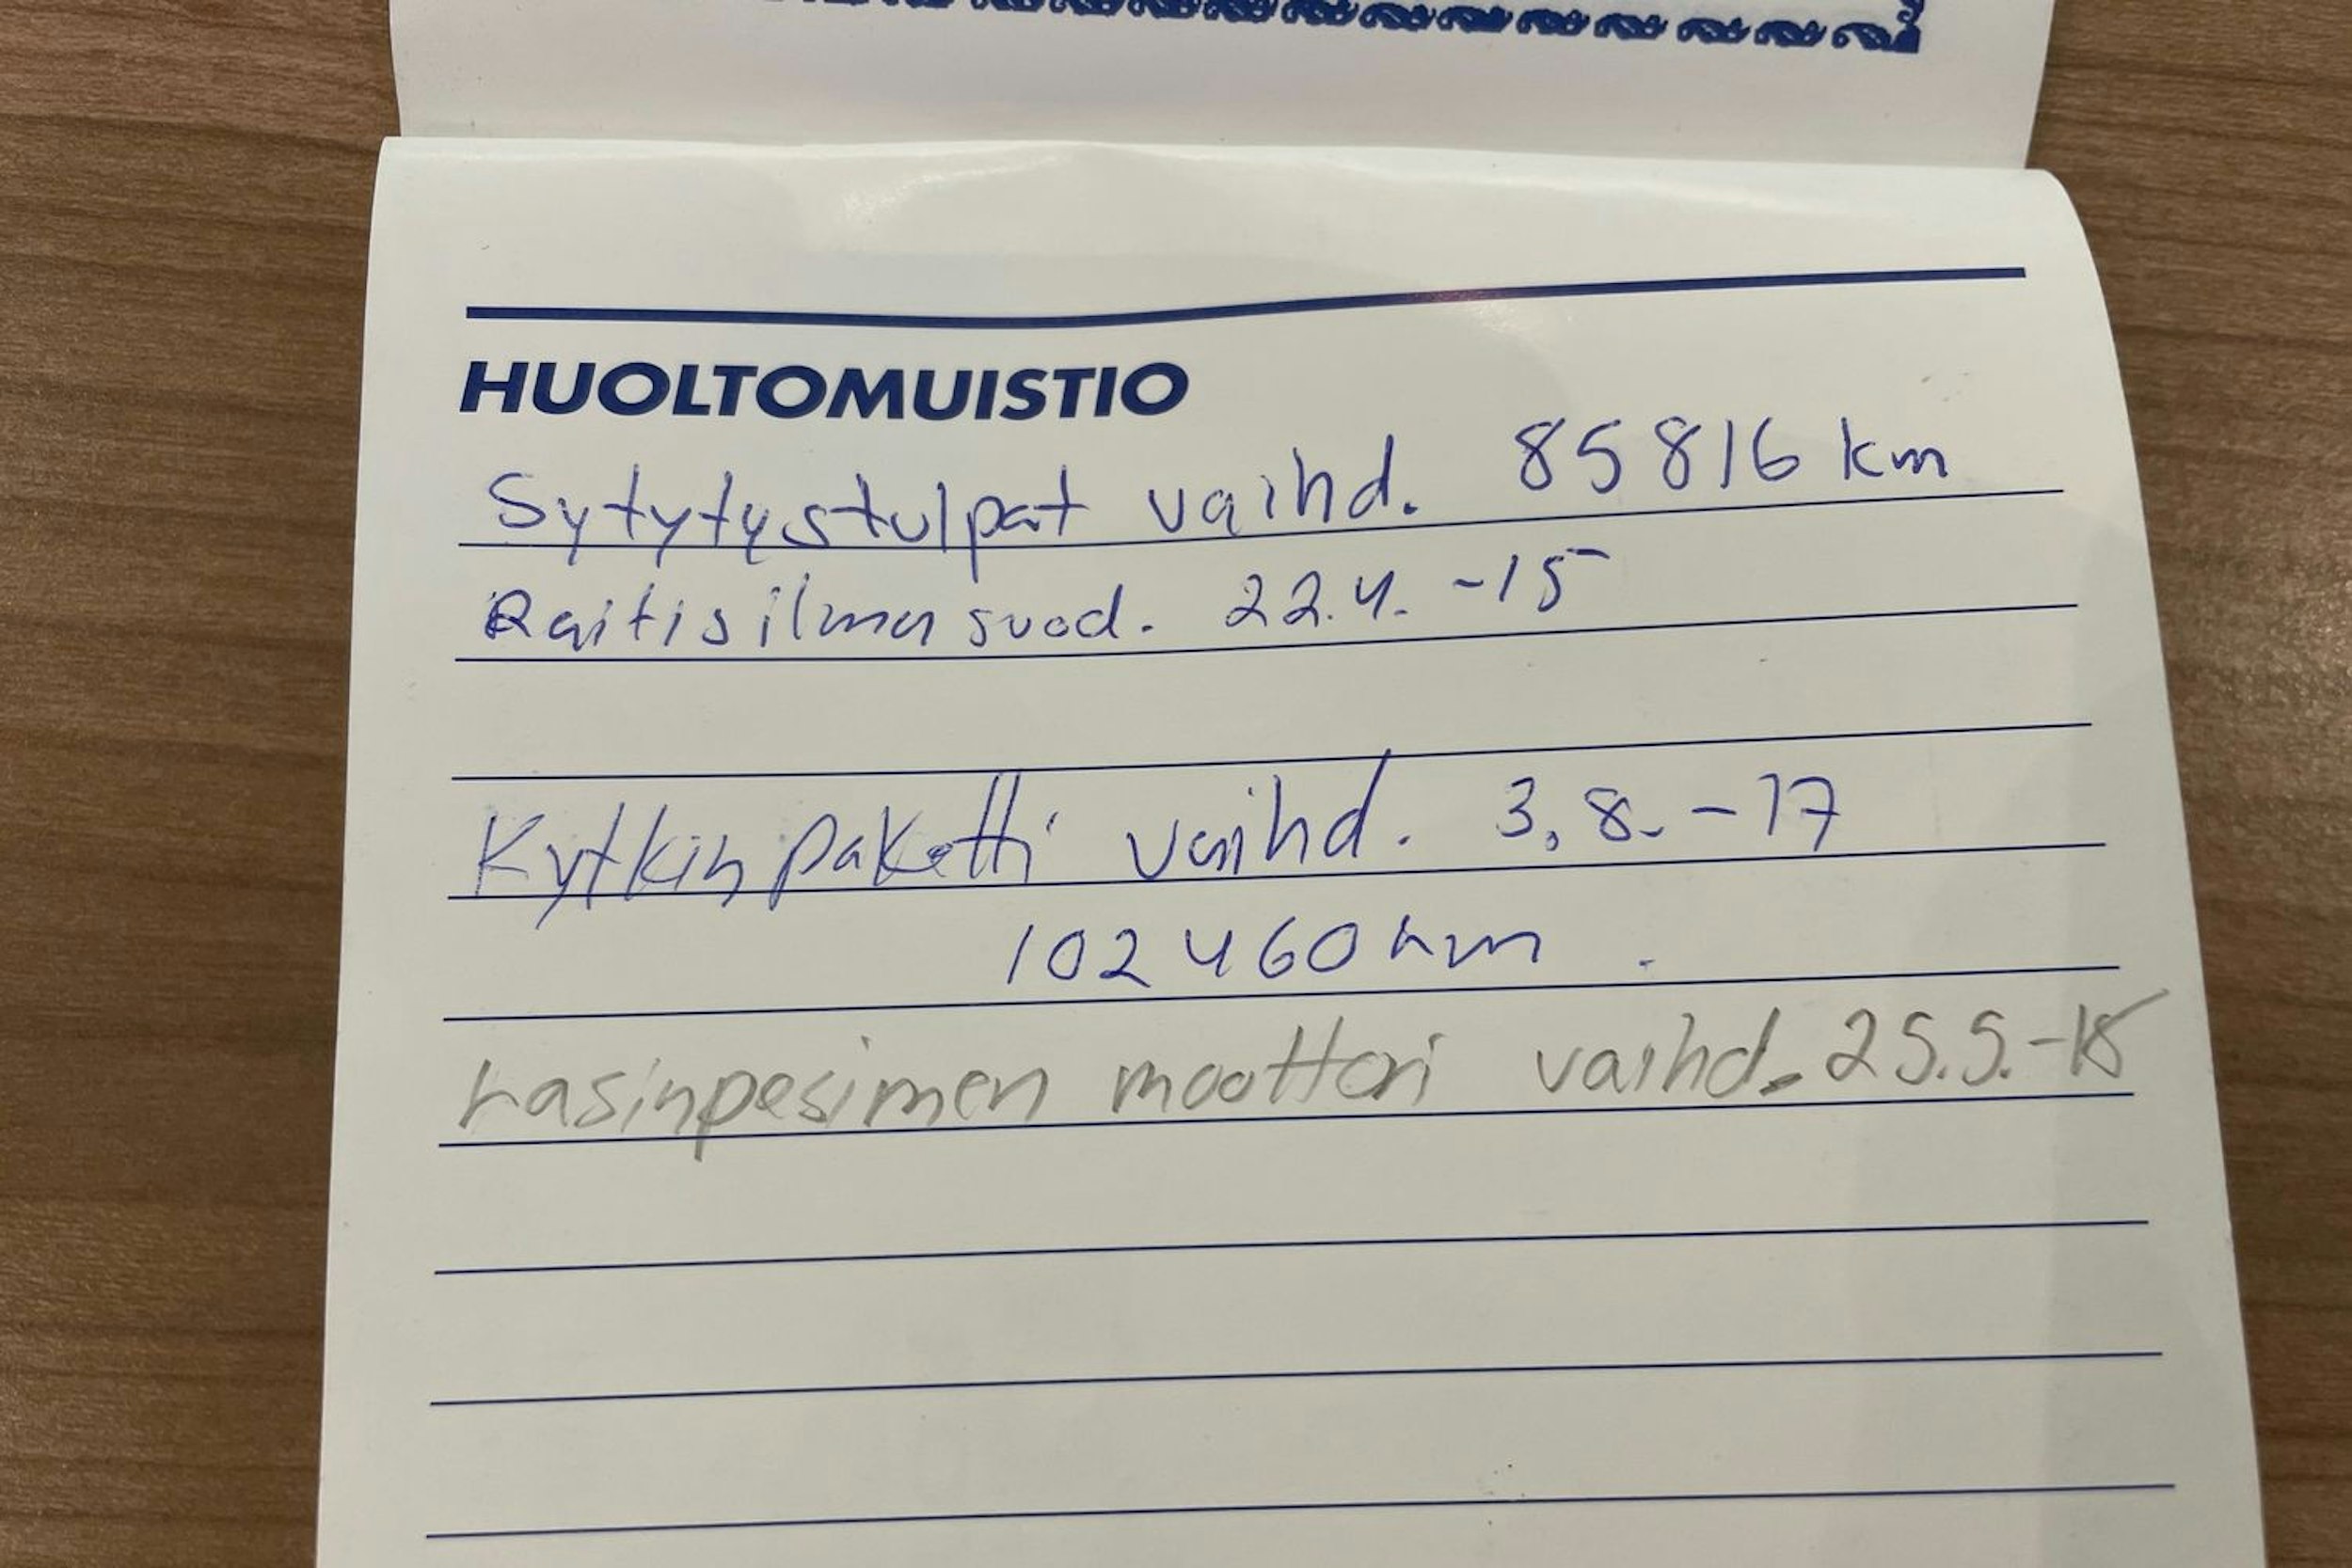 HUOLTOMUISTIO
Sytytystulpat vaihd. 85816 km
Raitisilmasuod. 22.4. -15
Kytkinpaketti vaihd. 3.8. -17
102460 km
Lasinpesimen moottori vaihd. 25.5.-18